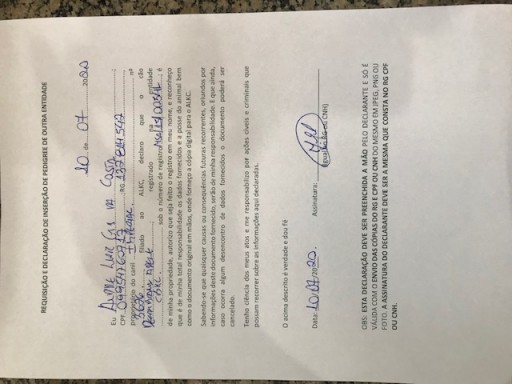 REQUISIÇÃO E DECLARAÇÃO DE INSERÇÃO DE PEDIGREE DE OUTRA ENTIDADE
10 de 07 2020
Eu Luiz
CPF RG nº
proprietário do canil
filiado ao ALKC, declaro que o cão
registrado na entidade
sob o número de registro é
de minha propriedade, autorizo que seja feito o registro em meu nome, e reconheço
que é de minha total responsabilidade os dados fornecidos e a posse do animal bem
como o documento original em mãos, onde forneço a cópia digital para o ALKC.
Sabendo-se que quaisquer causas ou consequências futuras recorrentes, oriundos por
informações deste documento fornecido, serão de minha responsabilidade. E que ainda,
caso ocorra algum desencontro de dados fornecidos o documento poderá ser
cancelado.
Tenho ciência dos meus atos e me responsabilizo por ações cíveis e criminais que
possam recorrer sobre as informações aqui declaradas.
O acima descrito é verdade e dou fé
Data: 10/07/2020. Assinatura:
OBS: ESTA DECLARAÇÃO DEVE SER PREENCHIDA A MÃO PELO DECLARANTE E SO É
VÁLIDA COM O ENVIO DAS CÓPIAS DO RG E CPF OU CNH DO MESMO EM JPEG, PNG OU
FOTO. A ASSINATURA DO DECLARANTE DEVE SER A MESMA QUE CONSTA NO RG CPF
OU CNH.